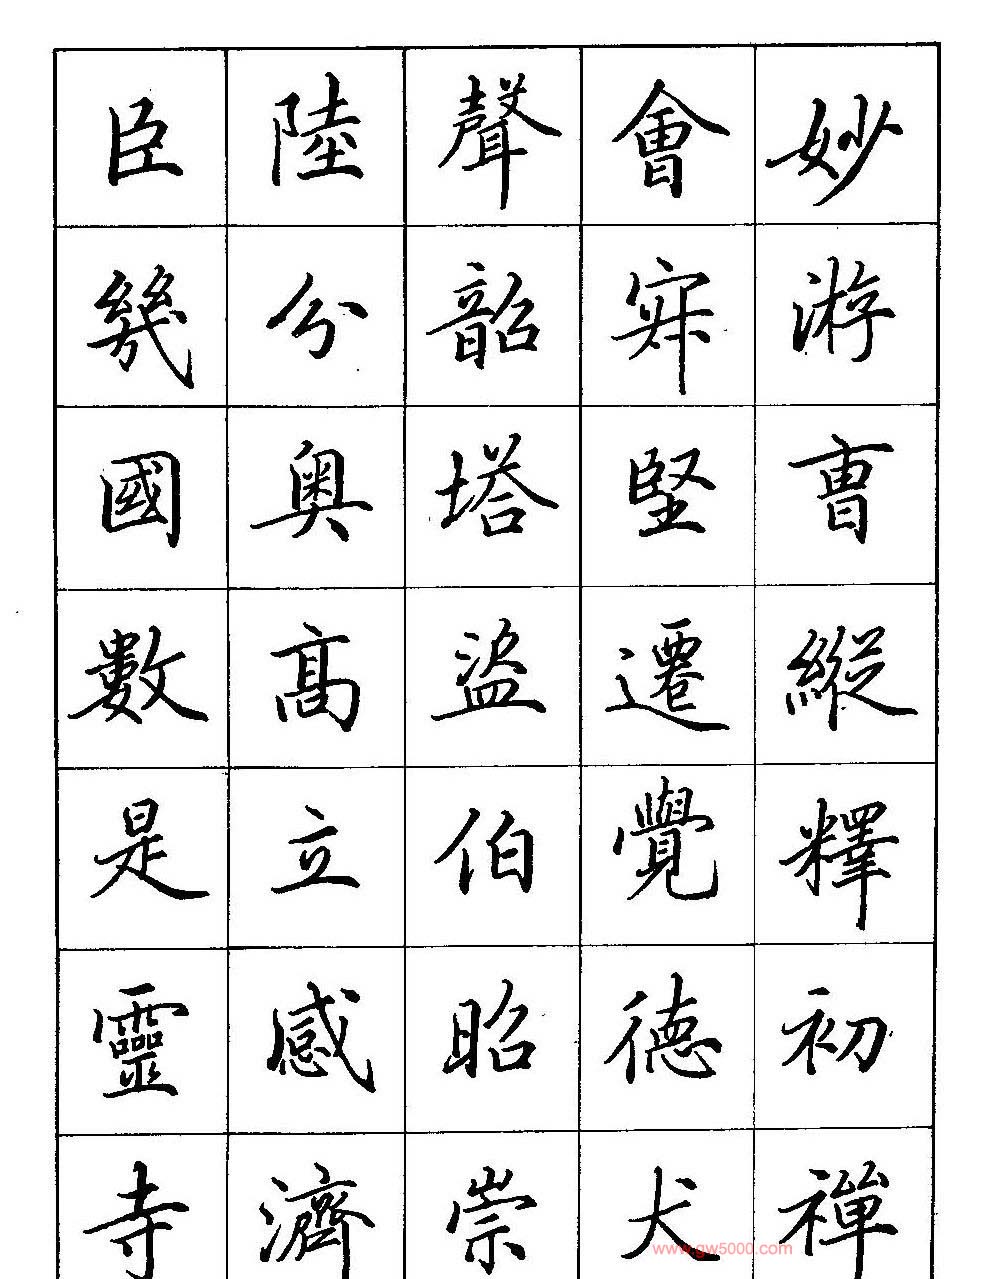 妙游曹縱釋初禪
會堅遷覺德犬
聲韶塔盜伯昭崇
陸分奧高立感濟
臣幾國數是靈寺
www.gw5000.com